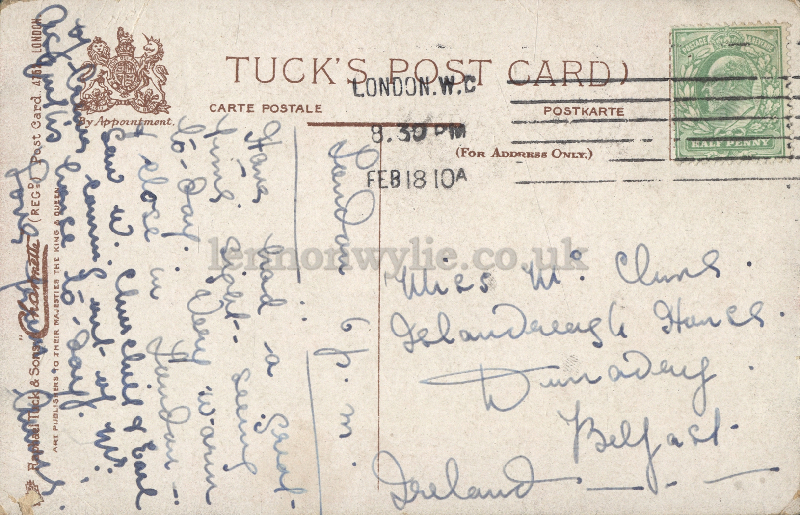 TUCK'S POST CARD
CARTE POSTALE
POSTKARTE
(FOR ADDRESS ONLY.)
By Appointment.
LONDON. W.C
8.30 PM
FEB 18 10A
HALF PENNY
Raphael Tuck & Sons' "Charmette" (REGD) Post Card. LONDON
ART PUBLISHERS TO THEIR MAJESTIES THE KING & QUEEN
London 6 p.m.
Have had a great
time sight-seeing
to-day. Very warm
& close in London.
Saw W. Churchill & Earl
coming out of Mr
Asquith's house to-day.
Miss Mc. Clure.
Islandreagh House.
Dunadry
Belfast.
Ireland
lennonwylie.co.uk